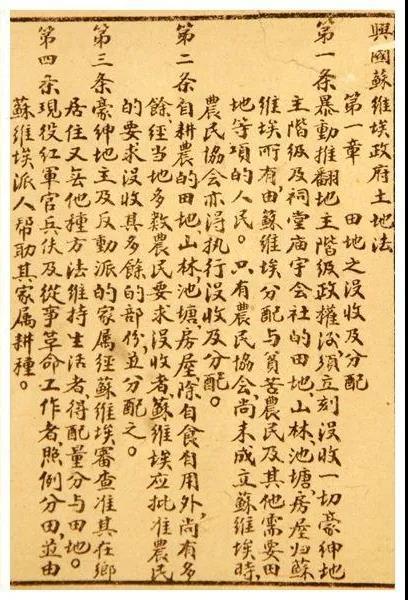 興國蘇維埃政府土地法
第一章　田地之没收及分配
第一条暴動推翻地主階級政權後，須立刻没收一切豪紳地
主階級及祠堂廟宇會社的田地山林池塘房屋归蘇
維埃所有，由蘇維埃分配与貧苦農民及其他需要田
地等項的人民。只有農民協会尚未成立蘇維埃時，
農民協会亦得执行没收及分配。
第二条自耕農的田地山林池塘、房屋除自食自用外，尚有多
餘，經当地多数農民要求没收者蘇維埃应批准農民
的要求没收其多餘的部份，並分配之。
第三条豪紳地主及反動派的家属經蘇維埃審查准其在鄉
居住又無他種方法維持生活者得配量分与田地。
第四条現役紅軍官兵伕及從事革命工作者照例分田，並由
蘇維埃派人帮助其家属耕種。